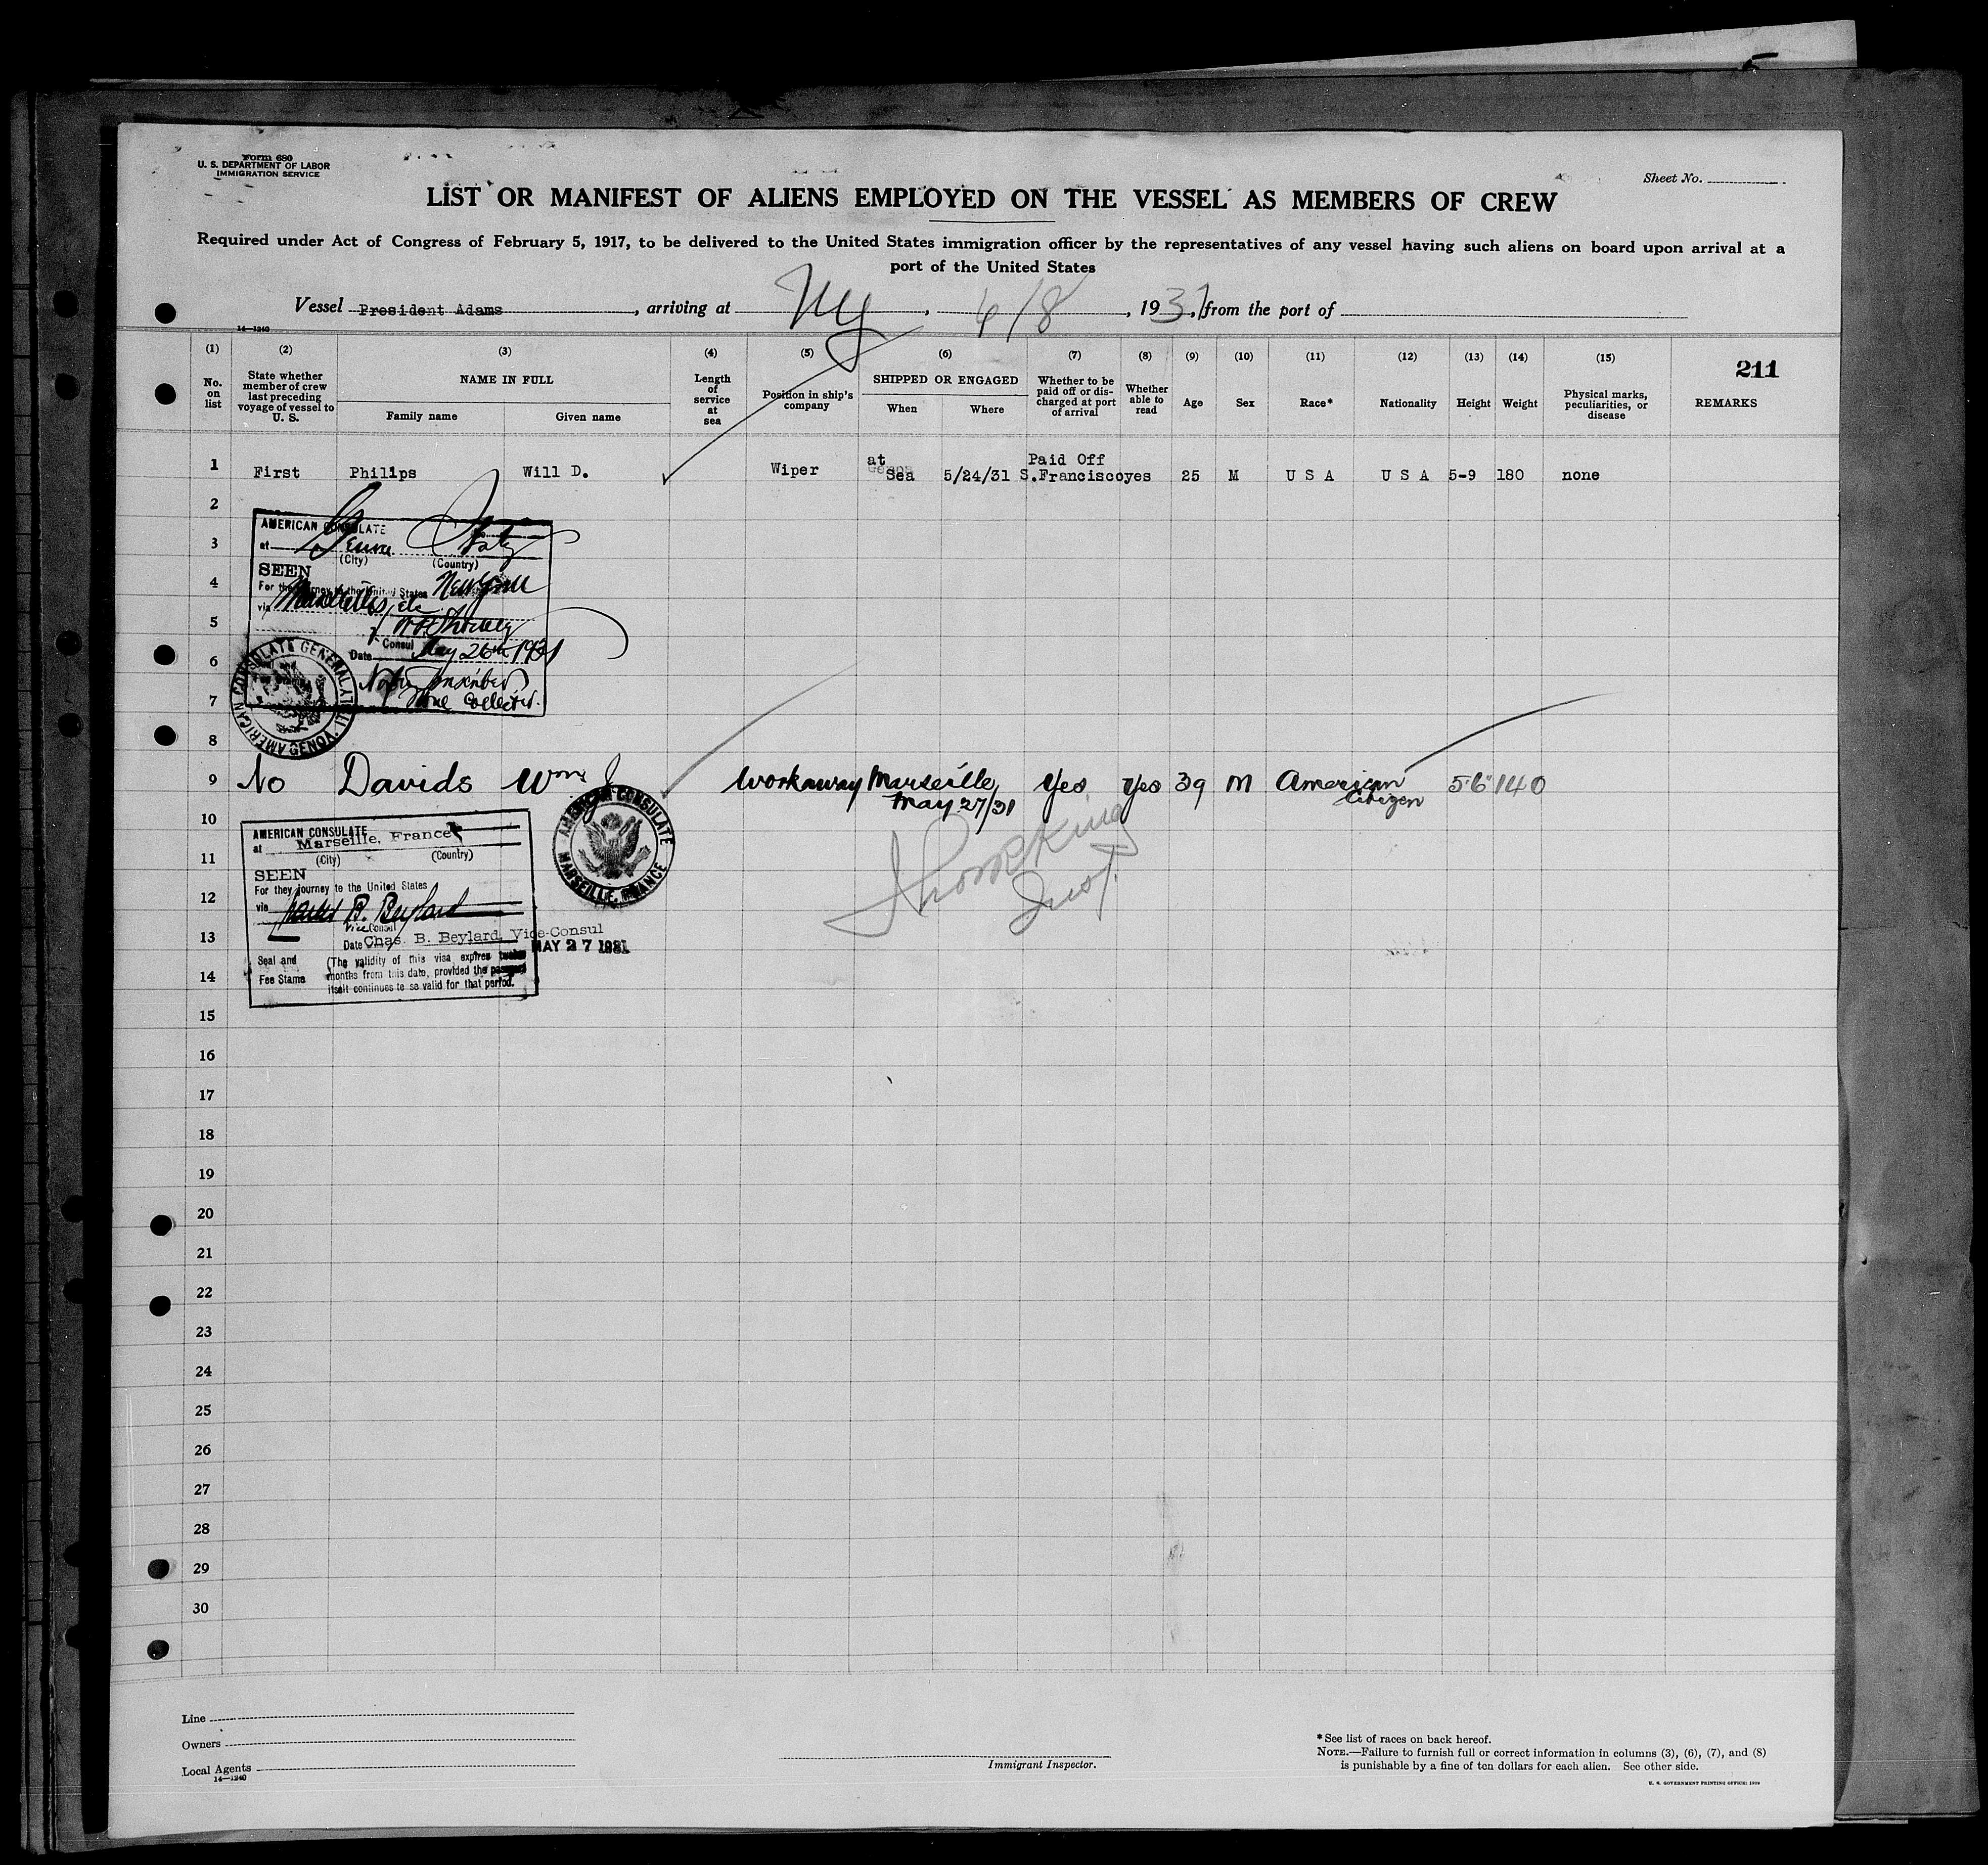 5
Form 680
U. S. DEPARTMENT OF LABOR
IMMIGRATION SERVICE
Sheet No.
LIST OR MANIFEST OF ALIENS EMPLOYED ON THE VESSEL AS MEMBERS OF CREW
Required under Act of Congress of February 5, 1917, to be delivered to the United States immigration officer by the representatives of any vessel having such aliens on board upon arrival at a
port of the United States
Vessel President Adams, arriving at NY, 6/8, 1931, from the port of
14—1240
(1) (2) (3) (4) (5) (6) (7) (8) (9) (10) (11) (12) (13) (14) (15)
211
No. on list
State whether member of crew last preceding voyage of vessel to U. S.
NAME IN FULL
Family name Given name
Length of service at sea
Position in ship's company
SHIPPED OR ENGAGED
When Where
Whether to be paid off or discharged at port of arrival
Whether able to read
Age
Sex
Race*
Nationality
Height
Weight
Physical marks, peculiarities, or disease
REMARKS
1 First Philips Will D. Wiper at Sea 5/24/31 Paid Off S.Francisco yes 25 M U S A U S A 5-9 180 none
2
AMERICAN CONSULATE
3
at Genoa Italy
(City) (Country)
SEEN
4
For the journey to the United States New York
via Marseilles, etc
5
Consul
Date May 26th 1931
6
collected.
7
AMERICAN CONSULATE GENERAL AT GENOA, ITALY
8
9 No Davids Wm J Workaway Marseille, May 27/31 Yes Yes 39 M American Citizen 5'6" 140
10
AMERICAN CONSULATE
at Marseille, France
(City) (Country)
AMERICAN CONSULATE
MARSEILLE, FRANCE
11
SEEN
For they journey to the United States
12
via Charles B. Beylard
Vice Consul
13
Date Chas. B. Beylard, Vice-Consul
MAY 27 1931
Seal and
Fee Stamp
(The validity of this visa expires twelve
14
months from this date, provided the passport
itself continues to be valid for that period.
15
16
17
18
19
20
21
22
23
24
25
26
27
28
29
30
Line
Owners
Local Agents
14—1240
Immigrant Inspector.
*See list of races on back hereof.
NOTE.—Failure to furnish full or correct information in columns (3), (6), (7), and (8)
is punishable by a fine of ten dollars for each alien. See other side.
U. S. GOVERNMENT PRINTING OFFICE: 1929